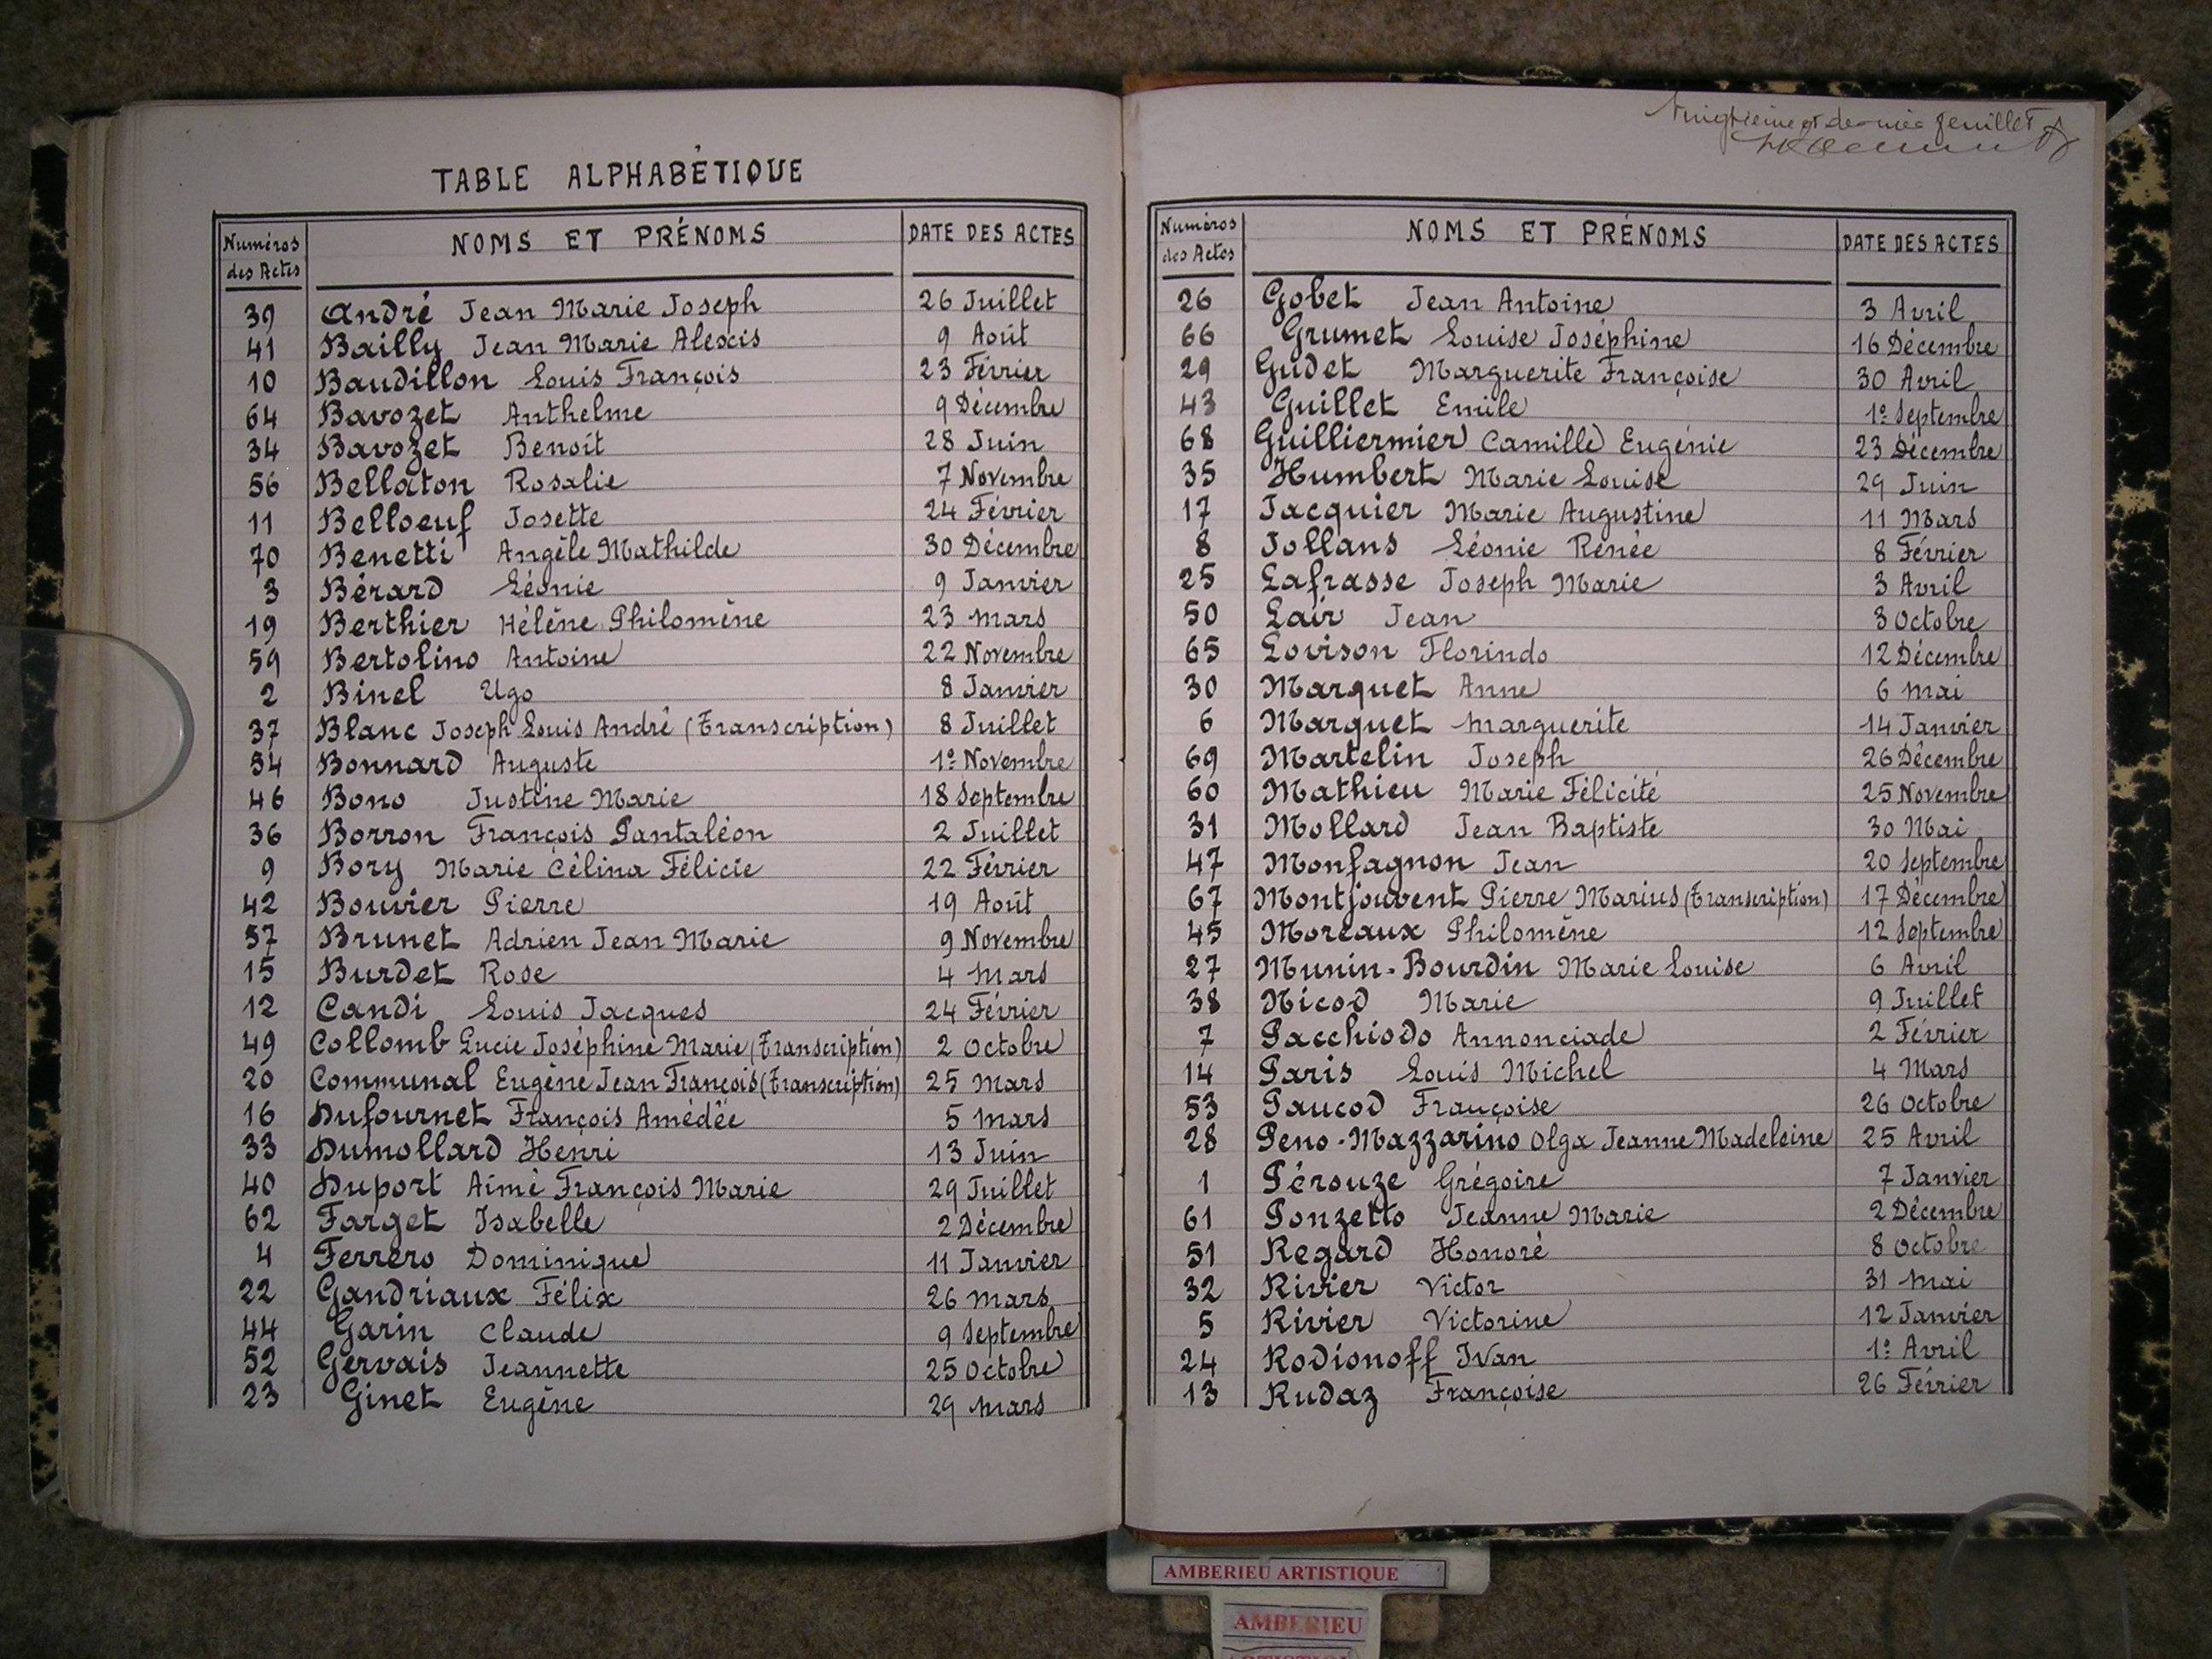 TABLE ALPHABÉTIQUE
Numéros des Actes NOMS ET PRÉNOMS DATE DES ACTES
39 André Jean Marie Joseph 26 Juillet
41 Bailly Jean Marie Alexis 9 Août
10 Baudillon Louis François 23 Février
64 Bavozet Anthelme 9 Décembre
34 Bavozet Benoit 28 Juin
56 Bellaton Rosalie 7 Novembre
11 Belloeuf Josette 24 Février
70 Benetti Angèle Mathilde 30 Décembre
3 Bérard Léonie 9 Janvier
19 Berthier Hélène Philomène 23 Mars
59 Bertolino Antoine 22 Novembre
2 Binel Ugo 8 Janvier
37 Blanc Joseph Louis André (Transcription) 8 Juillet
54 Bonnard Auguste 1er Novembre
46 Bono Justine Marie 18 Septembre
36 Borron François Pantaléon 2 Juillet
9 Bory Marie Célina Félicie 22 Février
42 Bouvier Pierre 19 Août
57 Brunet Adrien Jean Marie 9 Novembre
15 Burdet Rose 4 Mars
12 Candi Louis Jacques 24 Février
49 Collomb Lucie Joséphine Marie (Transcription) 2 Octobre
20 Communal Eugène Jean François (Transcription) 25 Mars
16 Dufournet François Amédée 5 Mars
33 Dumollard Henri 13 Juin
40 Duport Aimé François Marie 29 Juillet
62 Farget Isabelle 2 Décembre
4 Ferrero Dominique 11 Janvier
22 Gandriaux Félix 26 Mars
44 Garin Claude 9 Septembre
52 Gervais Jeannette 25 Octobre
23 Ginet Eugène 29 Mars
Vingtième et dernier feuillet
Numéros des Actes NOMS ET PRÉNOMS DATE DES ACTES
26 Gobet Jean Antoine 3 Avril
66 Grumet Louise Joséphine 16 Décembre
29 Gudet Marguerite Françoise 30 Avril
43 Guillet Emile 1er Septembre
68 Guilliermier Camille Eugénie 23 Décembre
35 Humbert Marie Louise 29 Juin
17 Jacquier Marie Augustine 11 Mars
8 Jollans Léonie Rénée 8 Février
25 Lafrasse Joseph Marie 3 Avril
50 Lair Jean 3 Octobre
65 Lovison Florindo 12 Décembre
30 Marquet Anne 6 Mai
6 Marquet Marguerite 14 Janvier
69 Martelin Joseph 26 Décembre
60 Mathieu Marie Félicité 25 Novembre
31 Mollard Jean Baptiste 30 Mai
47 Monfagnon Jean 20 Septembre
67 Montjouvent Pierre Marius (Transcription) 17 Décembre
45 Moreaux Philomène 12 Septembre
27 Munin-Bourdin Marie Louise 6 Avril
38 Nicod Marie 9 Juillet
7 Pacchiodo Annonciade 2 Février
14 Paris Louis Michel 4 Mars
53 Paucod Françoise 26 Octobre
28 Peno-Mazzarino Olga Jeanne Madeleine 25 Avril
1 Pérouze Grégoire 7 Janvier
61 Ponzetto Jeanne Marie 2 Décembre
51 Regard Honoré 8 Octobre
32 Rivier Victor 31 Mai
5 Rivier Victorine 12 Janvier
24 Rodionoff Ivan 1er Avril
13 Rudaz Françoise 26 Février
AMBERIEU ARTISTIQUE
AMBERIEU
ARTISTIQUE